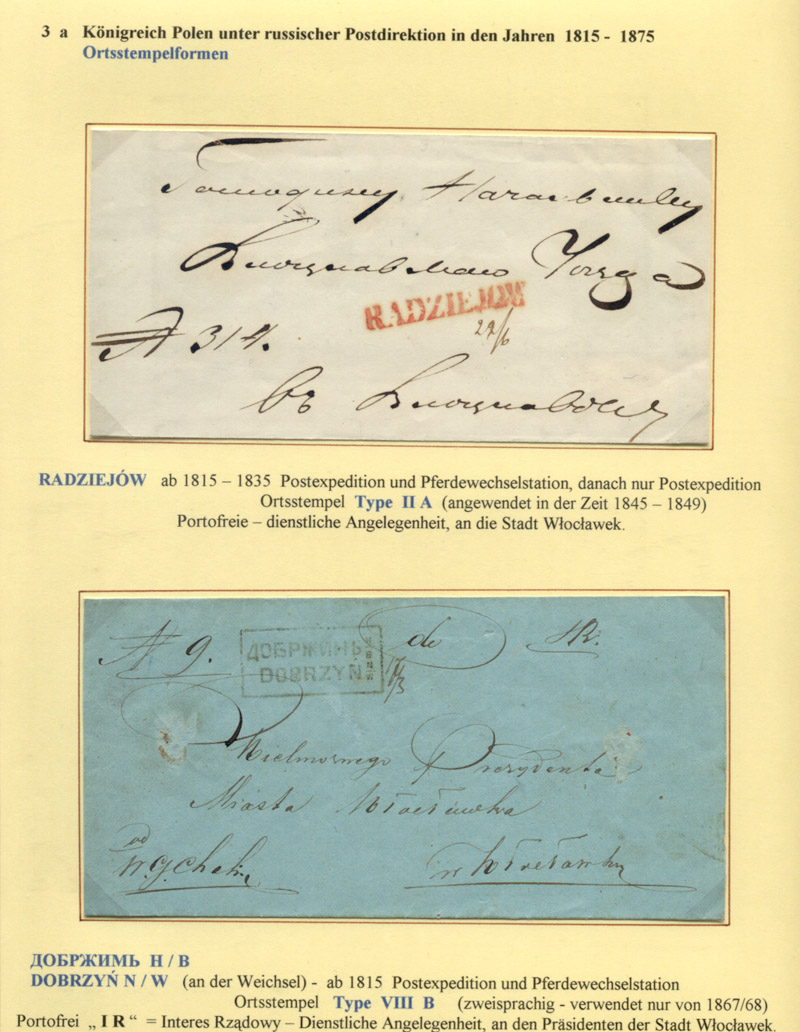 3 a Königreich Polen unter russischer Postdirektion in den Jahren 1815 - 1875
Ortsstempelformen
RADZIEJÓW
22/6
№ 314.
въ
RADZIEJÓW ab 1815 – 1835 Postexpedition und Pferdewechselstation, danach nur Postexpedition
Ortsstempel Type II A (angewendet in der Zeit 1845 – 1849)
Portofreie – dienstliche Angelegenheit, an die Stadt Włocławek.
№ 9. ДОБРЖИНЬ do IR.
DOBRZYŃ
Wielmożnego Prezydenta
Miasta Włocławka
od
w Włocławku
ДОБРЖИМЬ Н / В
DOBRZYŃ N / W (an der Weichsel) - ab 1815 Postexpedition und Pferdewechselstation
Ortsstempel Type VIII B (zweisprachig - verwendet nur von 1867/68)
Portofrei „ I R “ = Interes Rządowy – Dienstliche Angelegenheit, an den Präsidenten der Stadt Włocławek.